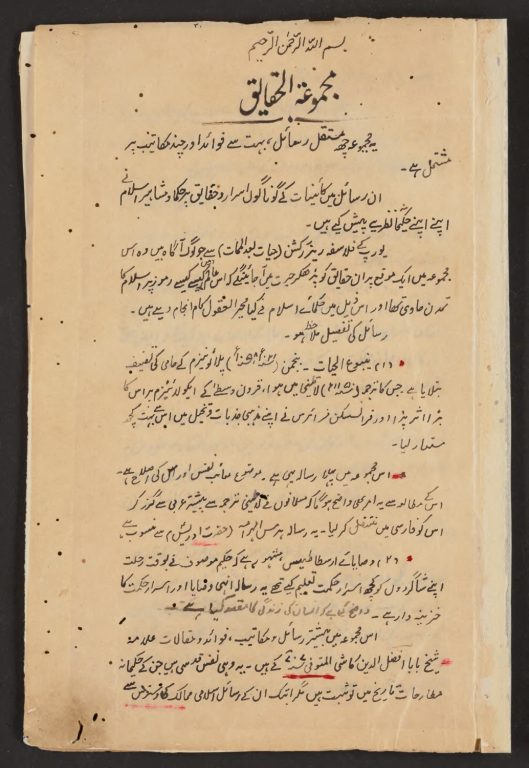 بسم اللہ الرحمٰن الرحیم
مجموعۃ الحقایق
یہ مجموعہ چھ مستقل رسائل، بہت سے فوائد اور چند مکاتیب پر
مشتمل ہے۔
ان رسائل میں کائنات کے گوناگوں اسرار و حقایق پر حکما و مشاہیر اسلام نے
اپنے اپنے حکیمانہ نظریے پیش کیے ہیں۔
یورپ کے فلاسفہ ریزرکشن (حیات بعد الممات) سے جو لوگ آگاہ ہیں وہ اس
مجموعہ میں ایک موقع پر ان حقایق کو پڑھکر حیرت میں آ جائینگے کہ اس عالم کیسے کیسے رموز پر اسلام کا
تمدن حاوی تھا اور اس ذیل میں حکمائے اسلام نے کیا محیر العقول کام انجام دیے ہیں۔
رسائل کی تفصیل ملاحظہ ہو۔
(۱) ینبوع الحیات۔ پلاٹونیزم کے حامی کی تصنیف
بتلایا ہے جس کا ترجمہ لاطینی میں ہوا، قرون وسطیٰ کے اسکولاسٹیزم پر اس کا
بڑا اثر پڑا اور فرانسسکن فرائرس نے اپنے مذہبی جذبات و تخیل میں اس سے بہت کچھ
مستعار لیا۔
اس مجموعہ میں پہلا رسالہ یہی ہے۔ موضوع معاتب نفس اور اس کی اصلاح ہے۔
اس کے مطالعہ سے یہ امر بھی واضح ہوگا کہ مسلمانوں نے لاطینی ترجمہ سے پیشتر عربی سے گزر کر
اس کو فارسی میں منتقل کر لیا۔ یہ رسالہ ہرمس الہرامسہ (حضرت ادریسؑ) سے منسوب ہے۔
(۲) وصایائے ارسطاطیس مشہور ہے کہ حکیم موصوف نے بوقت رحلت
اپنے شاگردوں کو کچھ اسرار حکمت تعلیم کیے تھے یہ رسالہ انہی وصایا اور اسرار حکمت کا
خزینہ دار ہے۔ کہ انسان کی زندگی کا مقصد کیا ہے۔
اس مجموعہ میں بیشتر رسائل و مکاتیب، فوائد و مقالات علامہ
شیخ بابا افضل الدین کاشی المتوفی ۷۰۷ھ کے ہیں۔ یہ وہی نفس قدسی ہیں جن کے حکیمانہ
مطارحات تاریخ میں تو ثبت ہیں مگر ابتک ان کے رسائل اسلامی ممالک سے